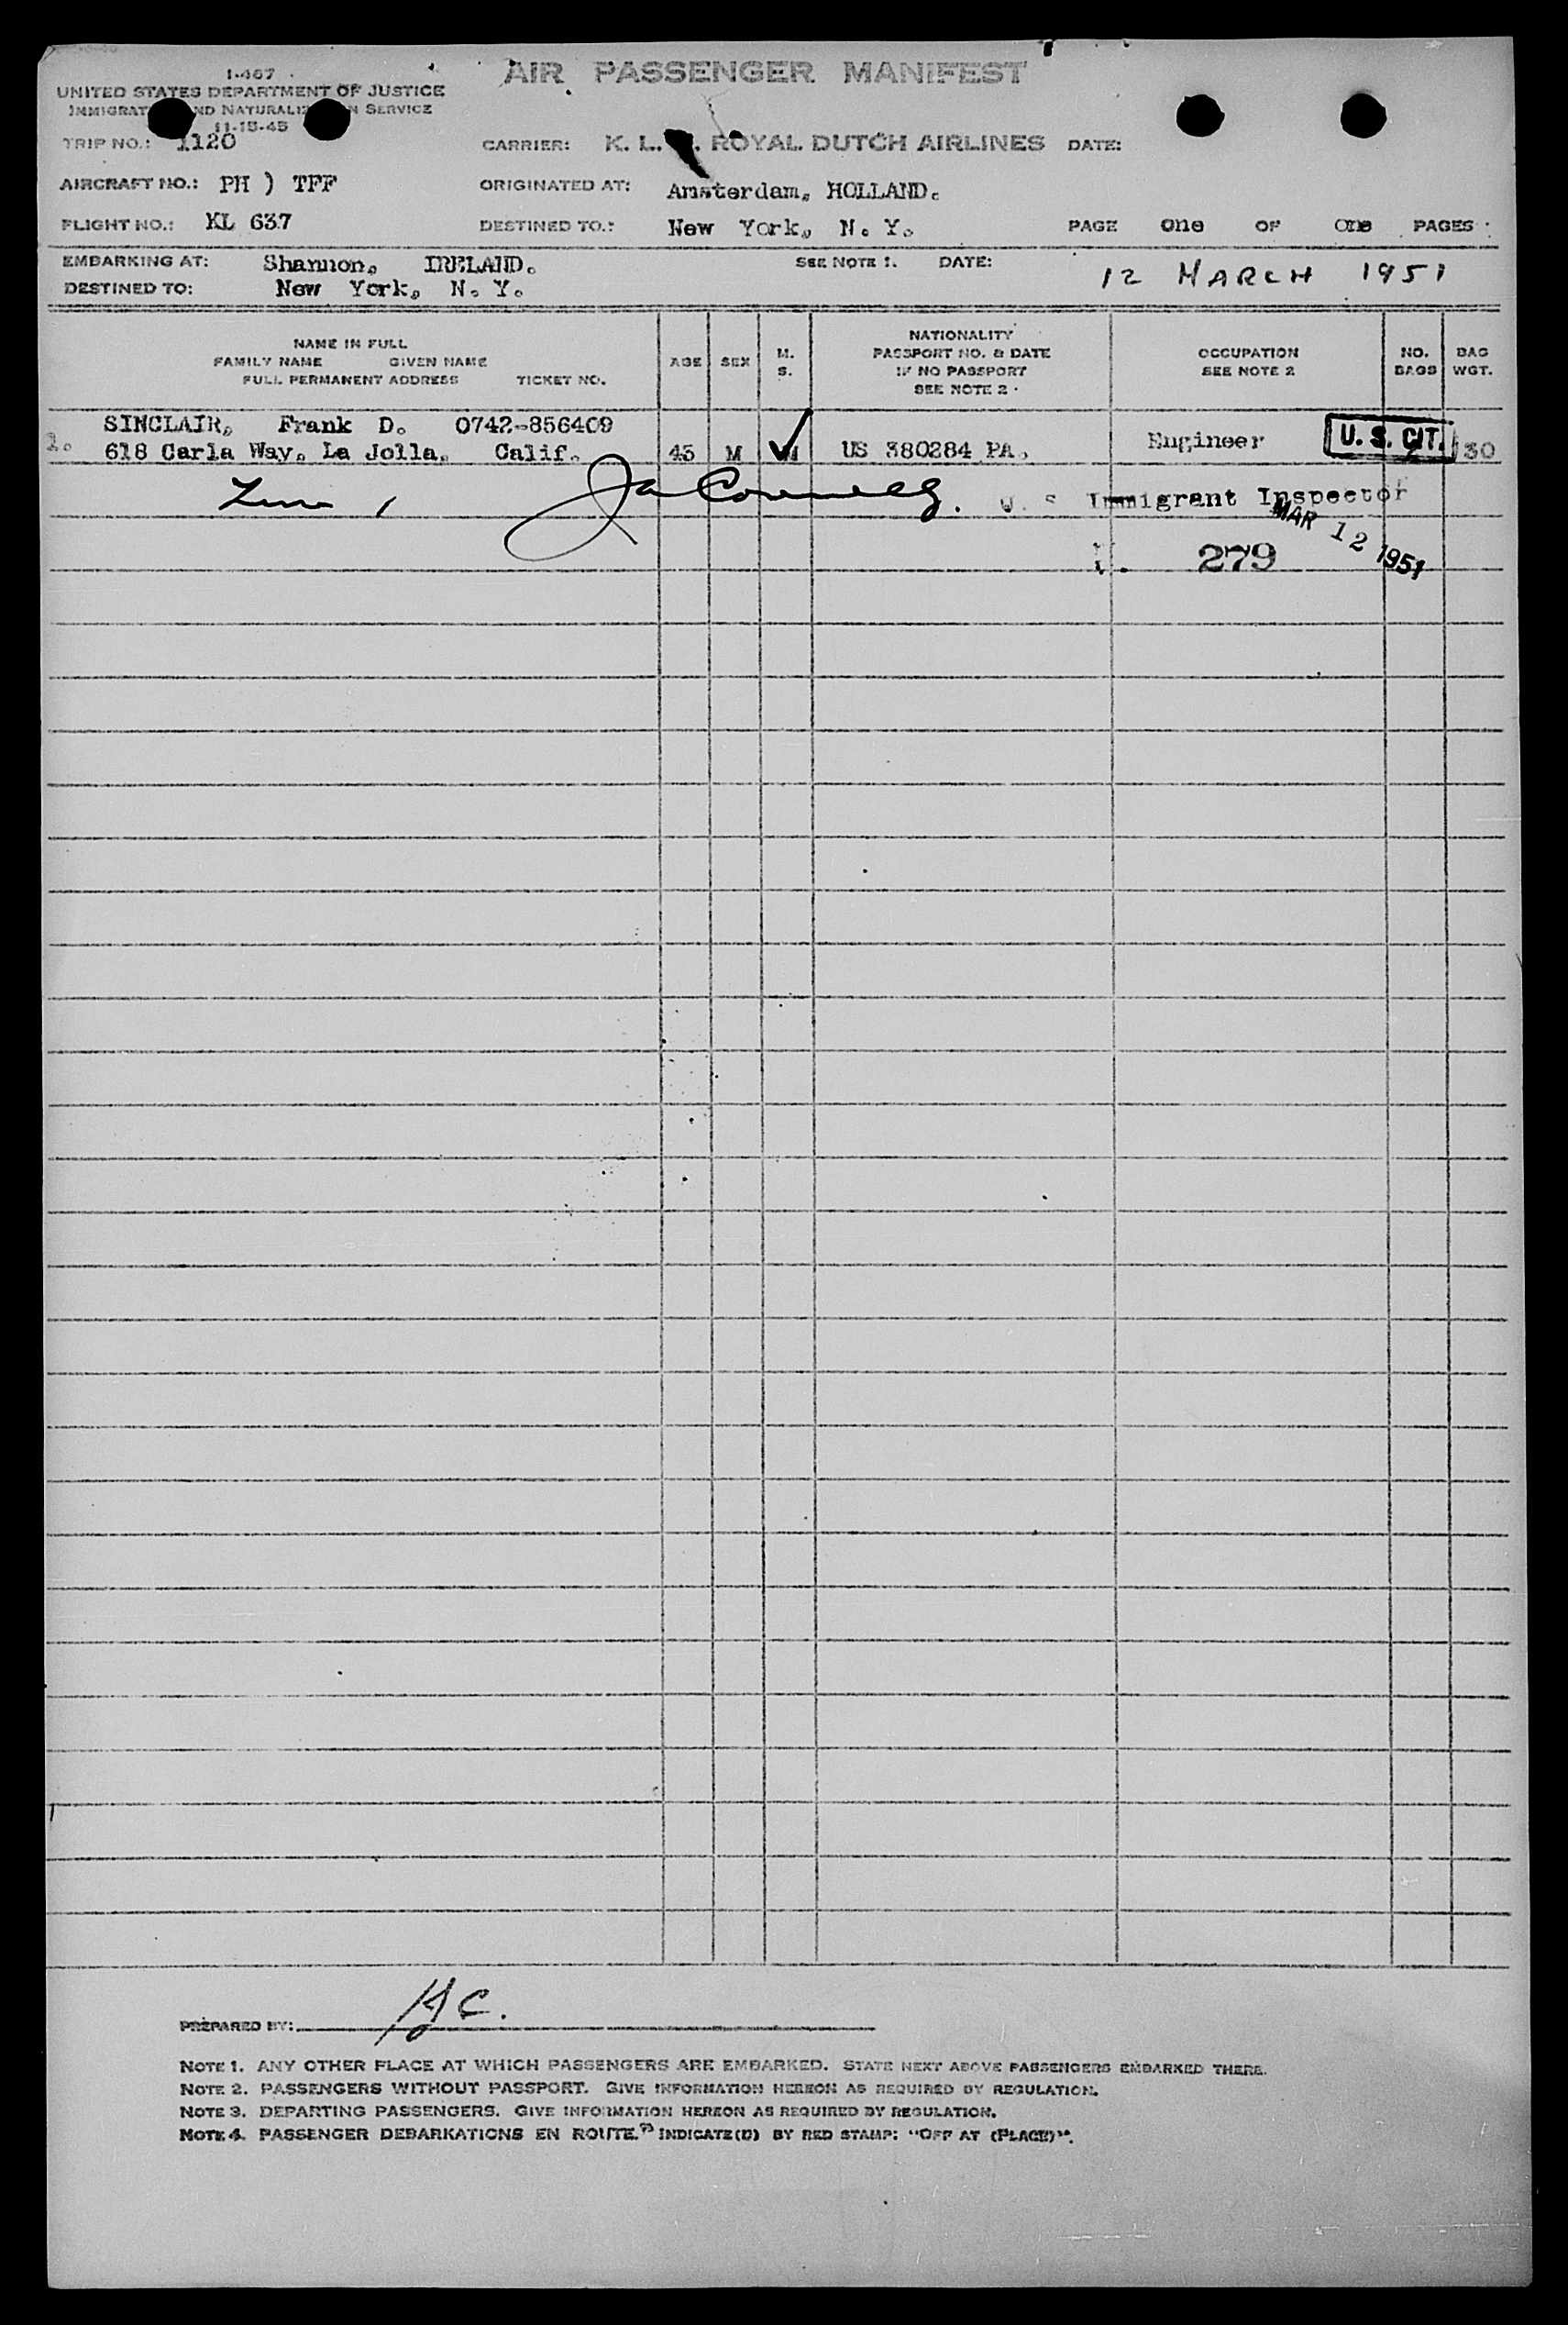 I-467
AIR PASSENGER MANIFEST
UNITED STATES DEPARTMENT OF JUSTICE
IMMIGRAT ND NATURALIZ N SERVICE
11-15-45
TRIP NO.: 1120 CARRIER: K. L. ROYAL DUTCH AIRLINES DATE:
AIRCRAFT NO.: PH ) TFF ORIGINATED AT: Amsterdam, HOLLAND.
FLIGHT NO.: KL 637 DESTINED TO.: New York, N. Y. PAGE one OF one PAGES
EMBARKING AT: Shannon, IRELAND. SEE NOTE 1. DATE: 12 MARCH 1951
DESTINED TO: New York, N. Y.
NAME IN FULL
FAMILY NAME GIVEN NAME
FULL PERMANENT ADDRESS TICKET NO.
AGE
SEX
M.
S.
NATIONALITY
PASSPORT NO. & DATE
IF NO PASSPORT
SEE NOTE 2
OCCUPATION
SEE NOTE 2
NO.
BAGS
BAG
WGT.
SINCLAIR, Frank D. 0742-856409
1. 618 Carla Way, La Jolla, Calif. 45 M US 380284 PA. Engineer U. S. CIT. 30
U. S. Immigrant Inspector
MAR 12 1951
279
PREPARED BY:
NOTE 1. ANY OTHER PLACE AT WHICH PASSENGERS ARE EMBARKED. STATE NEXT ABOVE PASSENGERS EMBARKED THERE.
NOTE 2. PASSENGERS WITHOUT PASSPORT. GIVE INFORMATION HEREON AS REQUIRED BY REGULATION.
NOTE 3. DEPARTING PASSENGERS. GIVE INFORMATION HEREON AS REQUIRED BY REGULATION.
NOTE 4. PASSENGER DEBARKATIONS EN ROUTE." INDICATE(D) BY RED STAMP: "OFF AT (PLACE)".